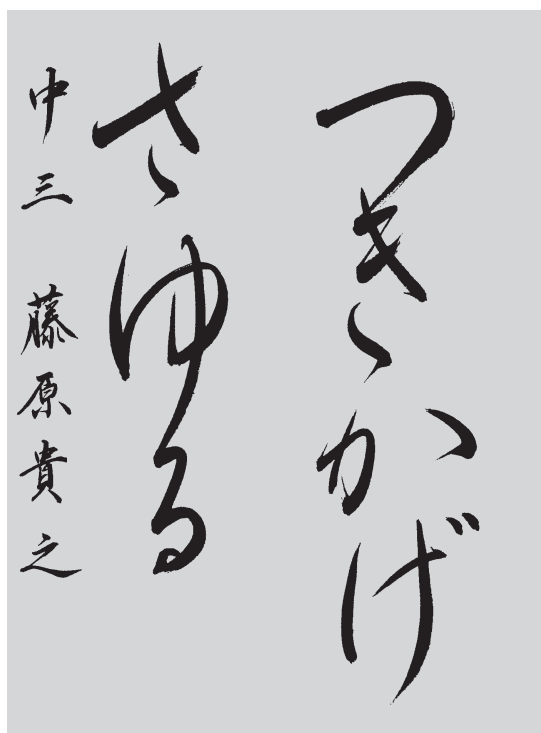 つきかげ
さゆる
中三 藤原貴之